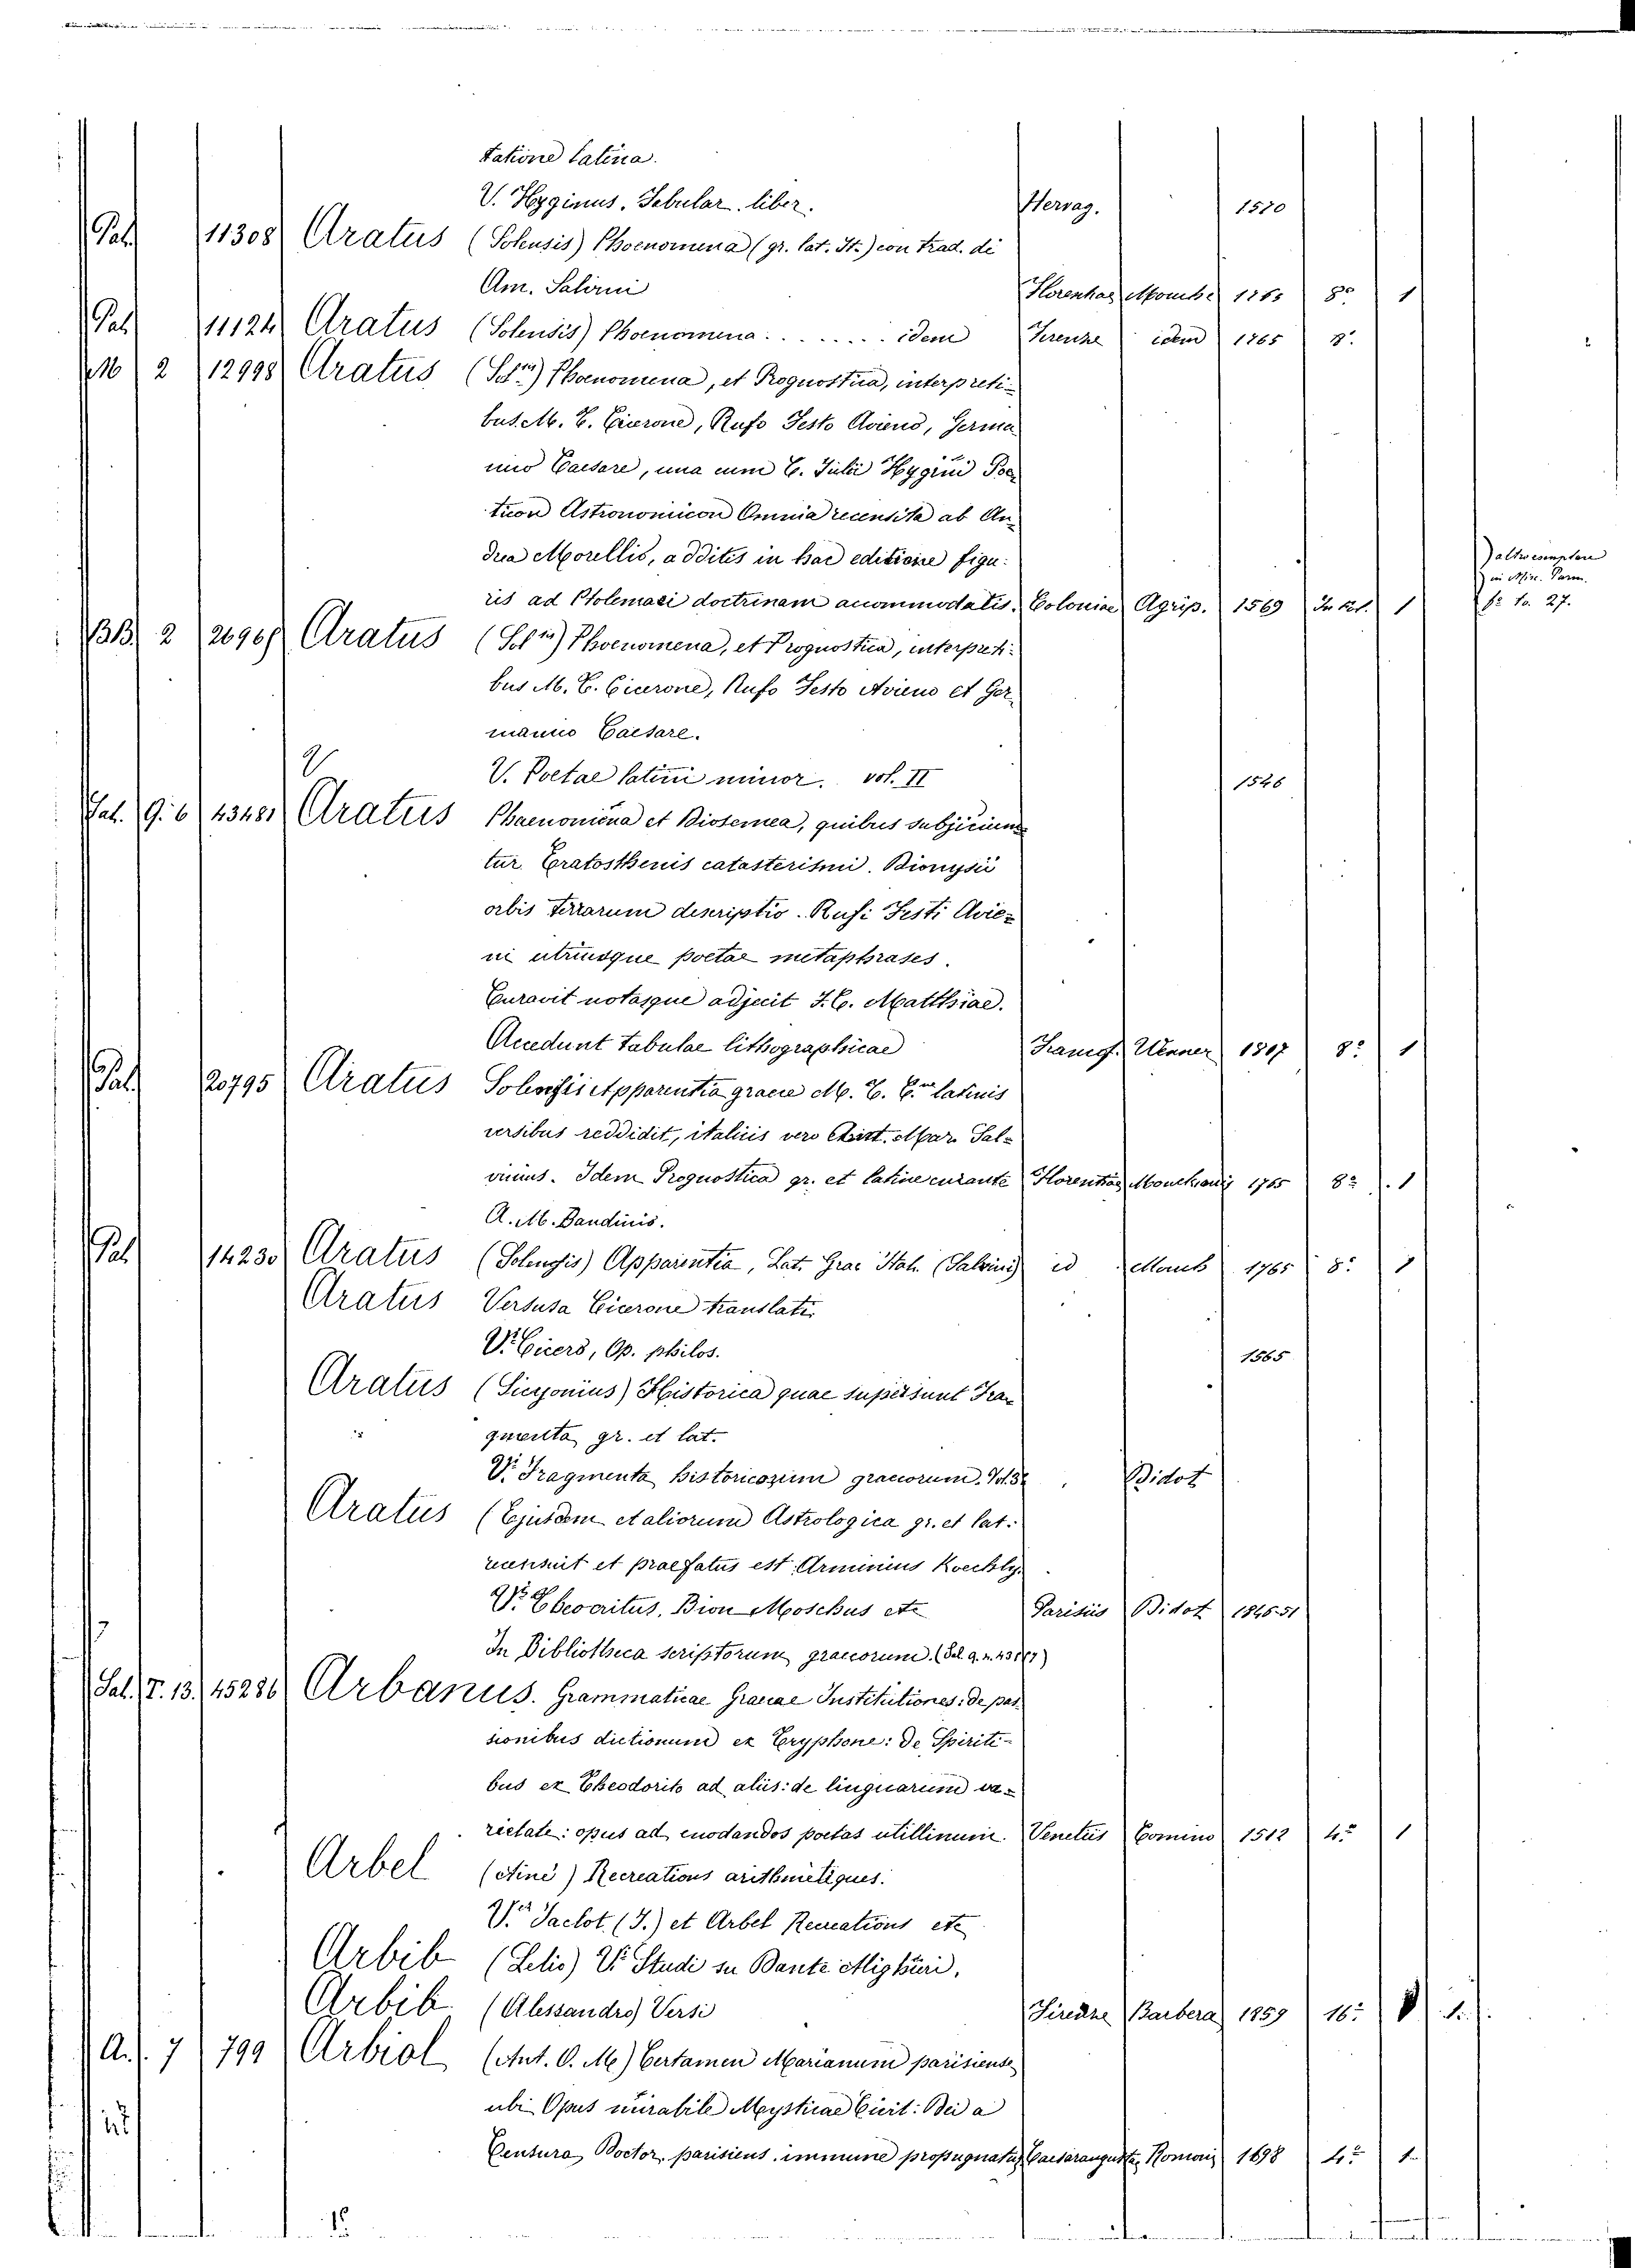 tatione latina.
V. Hyginus. Fabular. liber. Hervag. 1570
Pal. 11308 Aratus (Solensis) Phoenomena (gr. lat. It.) con trad. di
Am. Salvini Florentiae Moucke 1765 8º 1
Pal. 11124 Aratus (Solensis) Phoenomena........ idem Firenze idem 1765 8º.
M 2 12998 Aratus (Solis) Phoenomena, et Prognostica, interpreti-
bus M. T. Cicerone, Rufo Festo Avieno, Germa
nico Caesare, una cum C. Julii Hygini Poe
ticon Astronomicon Omnia recensita ab An
drea Morellio, additis in hac editione figu-
ris ad Ptolemaei doctrinam accommodatis. Coloniae Agrip. 1569 In fol. 1
altro esemplare
in Misc. Parm.
fº to. 27.
BB. 2 26969 Aratus (Solis) Phoenomena, et Prognostica, interpreti-
bus M. T. Cicerone, Rufo Festo Avieno et Ger
manico Caesare.
V. Poetae latini minor. vol. II 1546
V
Pal. G. 6 43481 Aratus Phaenomena et Diosemea, quibus subjiciun
tur Eratosthenis catasterismi. Dionysii
orbis terrarum descriptio. Rufi Festi Avie-
ni utriusque poetae metaphrases.
Curavit notasque adjecit F. C. Matthiae.
Accedunt tabulae lithographicae Francf. Wenner 1817 8º 1
Pal. 20795 Aratus Solensis Apparentia graece M. T. Cne latinis
versibus reddidit, italicis vero Ant. Mar. Sal-
vinius. Idem Prognostica gr. et latine curante Florentiae Mouckianis 1765 8º 1
A. M. Bandinio.
Pal. 14230 Aratus (Solensis) Apparentia, Lat. Grae Ital. (Salvini) id Mouck 1765 8º 1
Aratus Versus a Cicerone translati
V. Cicero, Op. philos. 1565
Aratus (Sicyonius) Historica quae supersunt Fra
gmenta gr. et lat.
V. Fragmenta historicorum graecorum. Vol. 3º Didot
Aratus (Ejusdem et aliorum Astrologica gr. et lat.
recensuit et praefatus est Arminius Koechly
V. Theocritus, Bion Moschus etc Parisiis Didot 1846-51
In Bibliotheca scriptorum graecorum. (Sal. 9. n. 43187)
Sal. T. 13. 45286 Arbanus. Grammaticae Graecae Institutiones: de pas
sionibus dictionum ex Tryphone: De Spiriti-
bus ex Theodorito ad aliis: de linguarum va-
rietate: opus ad enodandos poetas utillimum. Venetiis Comino 1512 4º 1
Arbel (Ainé) Recreations arithmétiques.
V. Jaclot. (J.) et Arbel Recreations etc
Arbib (Lelio) V. Studi su Dante Alighieri.
Arbib. (Alessandro) Versi Firenze Barbera 1859 16º 1
A. 7 799 Arbiol (Ant. O. M.) Certamen Marianum parisiense
ubi Opus mirabile Mysticae Civit: Dei a
Censura Doctor. parisiens. immune propugnatur Caesaraugustae Romain 1698 4º 1
15